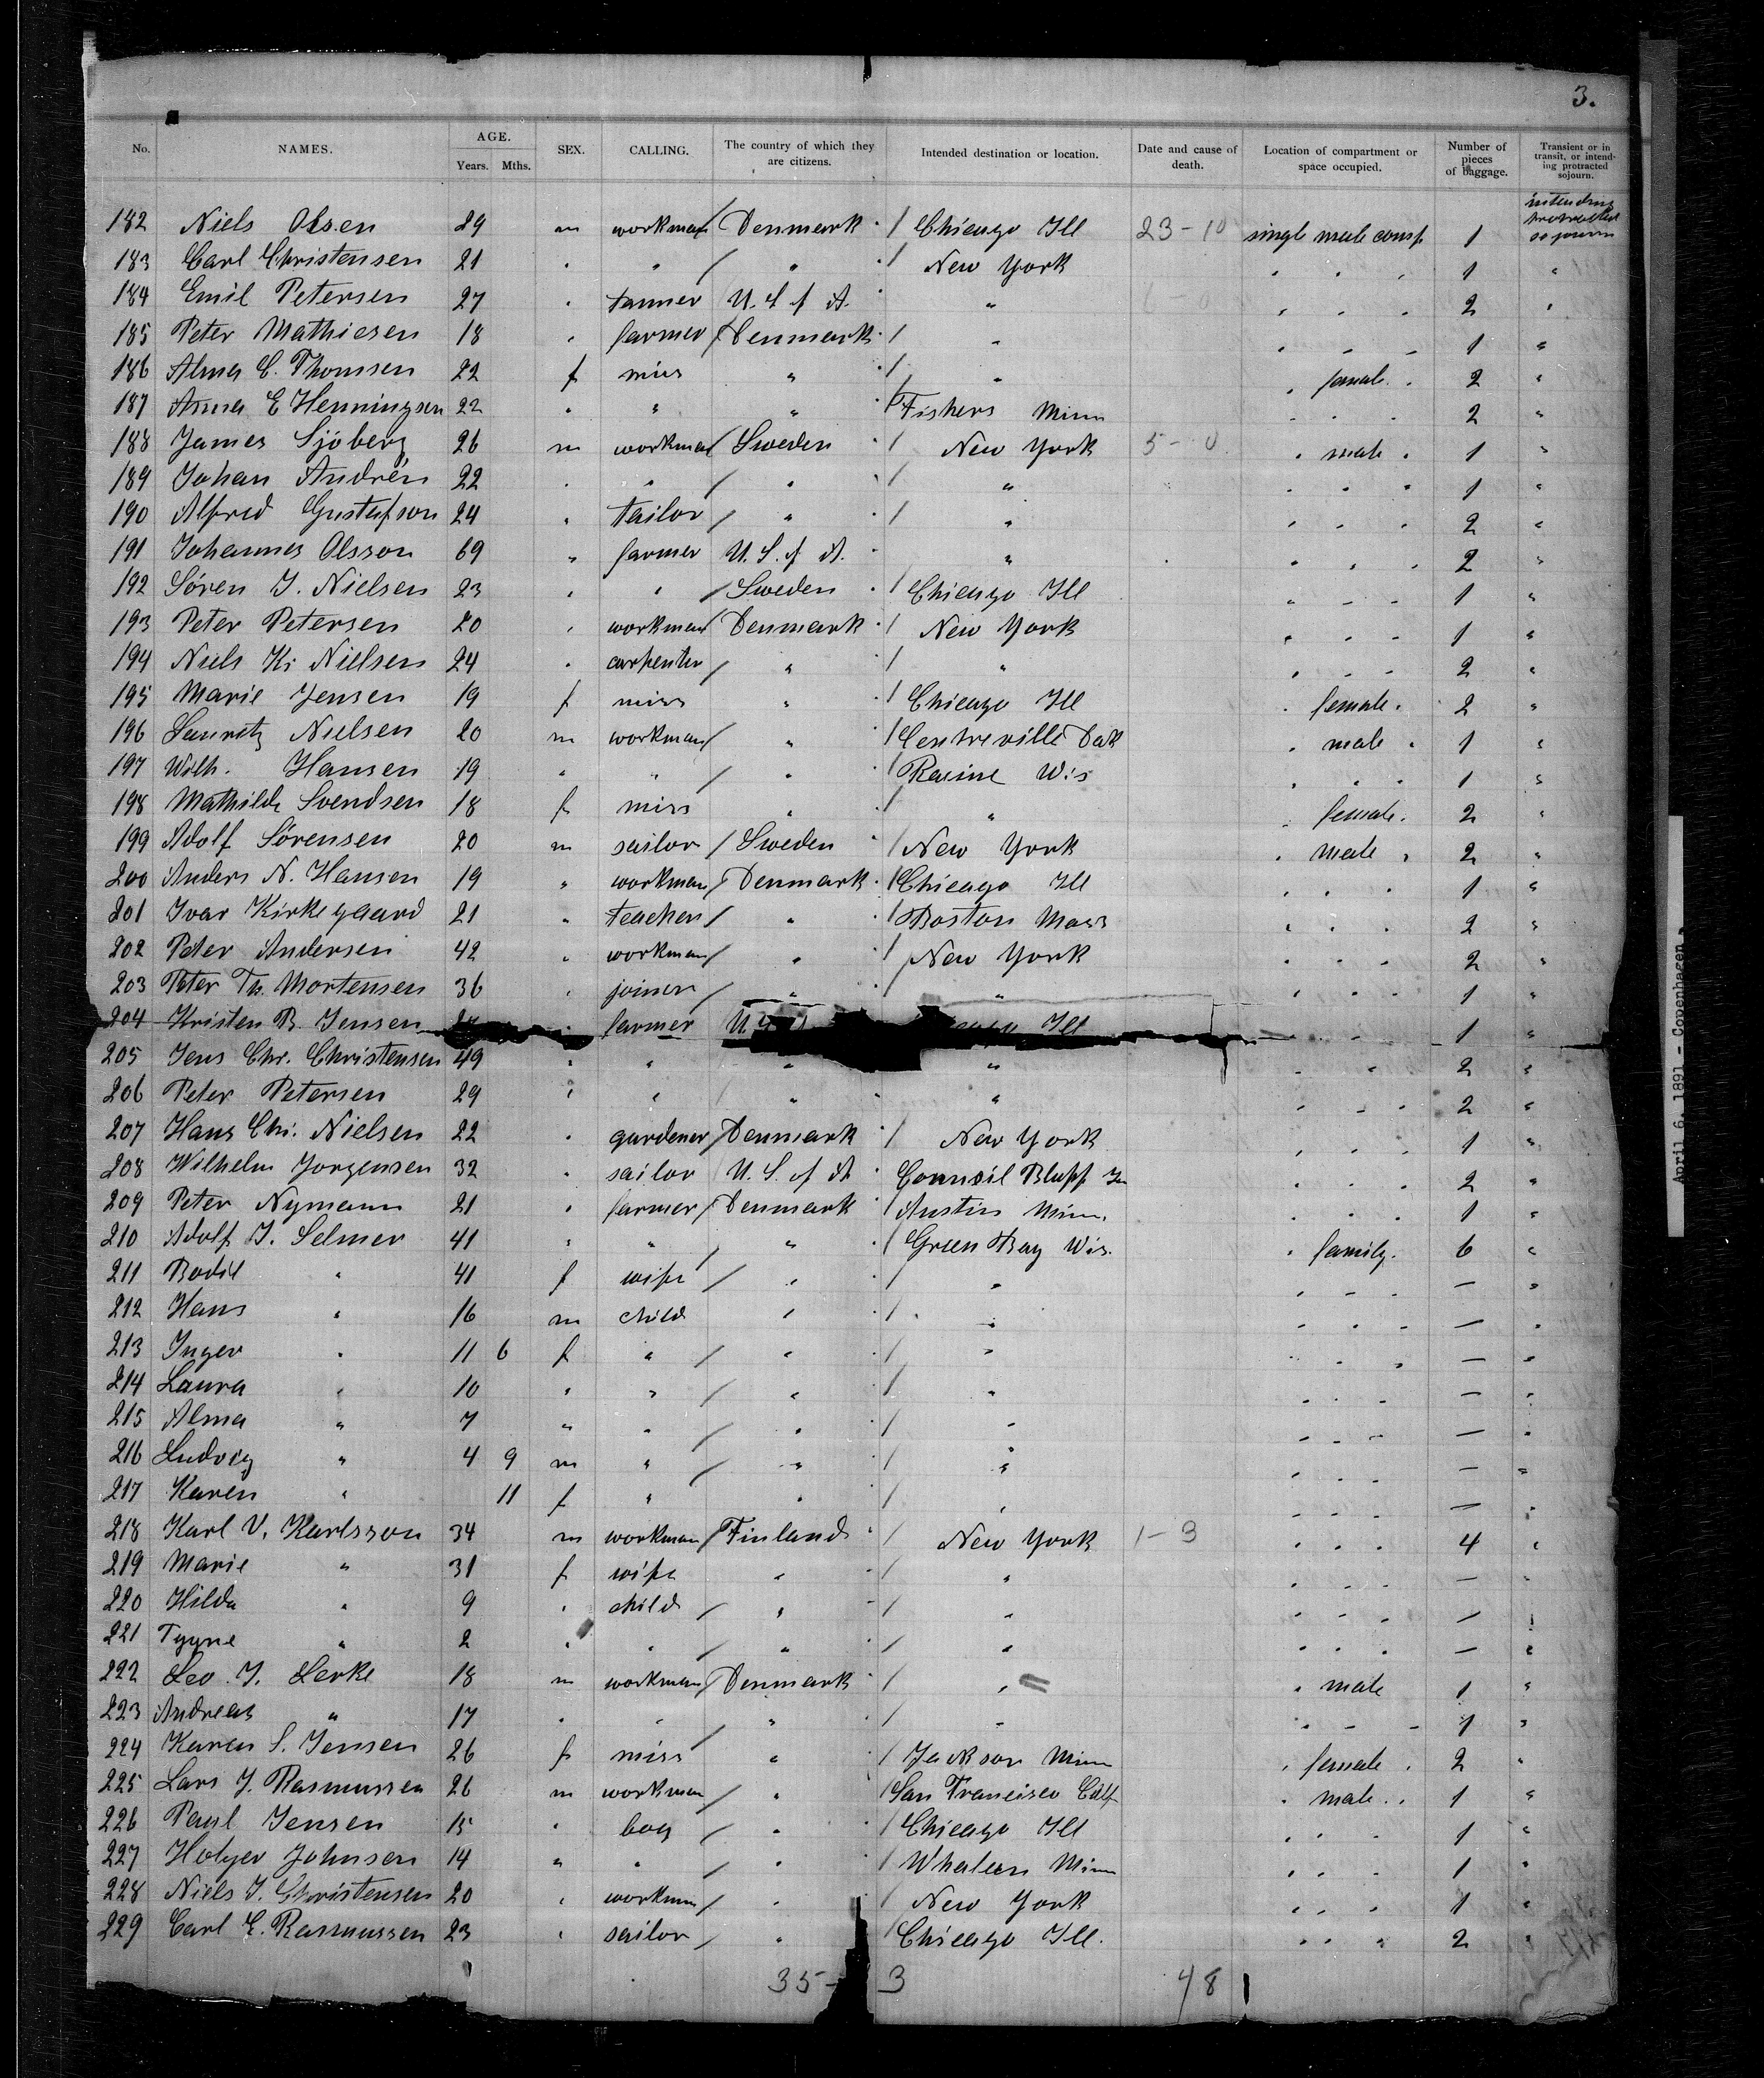 3.
No. NAMES. AGE. Years. Mths. SEX. CALLING. The country of which they are citizens. Intended destination or location. Date and cause of death. Location of compartment or space occupied. Number of pieces of baggage. Transient or in transit, or intending protracted sojourn.
182 Niels Olsen 29 m workman / Denmark / Chicago Ill 23-10 single male comp 1 intending protracted sojourn
183 Carl Christensen 21 " " / " / New York " " " 1 "
184 Emil Petersen 27 " tanner U. S. of A. " " " " 2 "
185 Peter Mathiesen 18 " farmer / Denmark / " " " " 1 "
186 Alma C. Thomsen 22 f miss " / " " female " 2 "
187 Anna E Henningsen 22 " " " / Fishers Minn " " " 2 "
188 James Sjöberg 26 m workman / Sweden / New York 5-0 " male " 1 "
189 Johan Andrén 22 " " / " / " " " " 1 "
190 Alfred Gustafson 24 " tailor / " / " " " " 2 "
191 Johannes Olsson 69 " farmer U. S. of A. " " " " 2 "
192 Sören J. Nielsen 23 " " / Sweden / Chicago Ill " " " 1 "
193 Peter Petersen 20 " workman / Denmark / New York " " " 1 "
194 Niels Kr Nielsen 24 " carpenter / " / " " " " 2 "
195 Marie Jensen 19 f miss " / Chicago Ill " female " 2 "
196 Lauritz Nielsen 20 m workman / " / Centreville Dak " male " 1 "
197 Wilh. Hansen 19 " " / " / Racine Wis " " " 1 "
198 Mathilde Svendsen 18 f miss " / " " female " 2 "
199 Adolf Sörensen 20 m sailor / Sweden / New York " male " 2 "
200 Anders N. Hansen 19 " workman / Denmark / Chicago Ill " " " 1 "
201 Ivar Kirkegaard 21 " teacher / " / Boston Mass " " " 2 "
202 Peter Andersen 42 " workman / " / New York " " " 2 "
203 Peter Th. Mortensen 36 " joiner / " / " " " " 1 "
204 Kristen B. Jensen " farmer Ill " " 1 "
205 Jens Chr. Christensen 49 " " " " " " 2 "
206 Peter Petersen 29 " " " " " " " 2 "
207 Hans Chr. Nielsen 22 " gardener / Denmark / New York " " " 1 "
208 Wilhelm Jorgensen 32 " sailor U. S. of A Counsil Bluff Ia " " " 2 "
209 Peter Nymann 21 " farmer / Denmark / Austin Minn. " " " 1 "
210 Adolf J. Selmer 41 " " " / Green Bay Wis. " family. 6 "
211 Bodil " 41 f wife / " / " " " " — "
212 Hans " 16 m child " / " " " " — "
213 Inger " 11 6 f " / " / " " " " — "
214 Laura " 10 " " / " / " " " " — "
215 Alma " 7 " " / " / " " " " — "
216 Ludvig " 4 9 m " / " / " " " " — "
217 Karen " 11 f " " / " " " " — "
218 Karl V. Karlsson 34 m workman / Finland / New York 1-3 " " " 4 "
219 Marie " 31 f wife " / " " " " — "
220 Hilda " 9 " child / " / " " " " — "
221 Tyyne " 2 " " / " / " " " " — "
222 Leo J. Lerke 18 m workman / Denmark / " " male 1 "
223 Andreas " 17 " " " / " " " " 1 "
224 Karen S. Jensen 26 f miss / " / Jackson Minn " female " 2 "
225 Lars J. Rasmussen 26 m workman / " / San Francisco Calf " male " 1 "
226 Paul Jensen 15 " boy / " / Chicago Ill " " " 1 "
227 Holger Johnsen 14 " " / " / Whalen Minn " " " 1 "
228 Niels J. Christensen 20 " workman / " / New York " " " 1 "
229 Carl E. Rasmussen 23 " sailor / " / Chicago Ill. " " " 2 "
35- 3 48
April 6, 1891 - Copenhagen